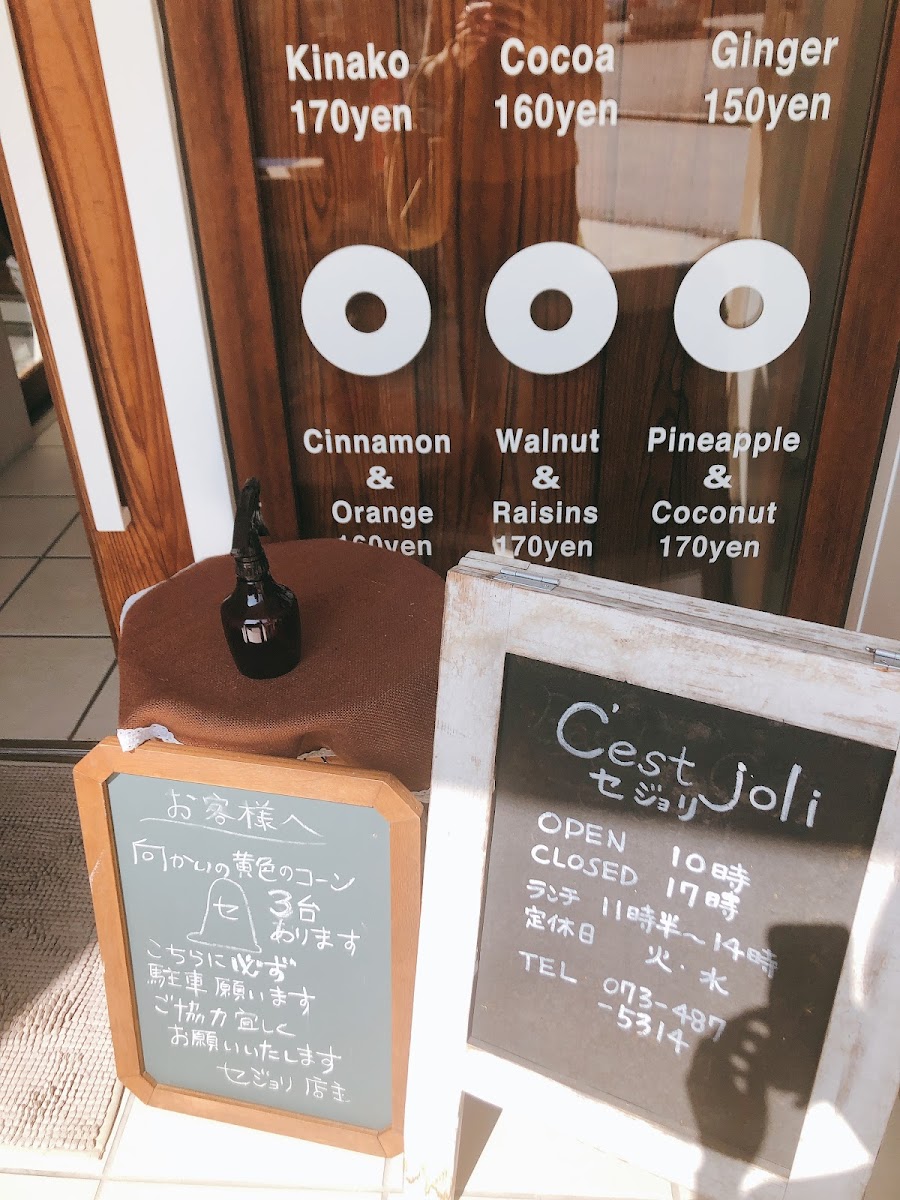 Kinako
170yen
Cocoa
160yen
Ginger
150yen
Cinnamon
&
Orange
160yen
Walnut
&
Raisins
170yen
Pineapple
&
Coconut
170yen
お客様へ
向かいの黄色のコーン
セ 3台
あります
こちらに必ず
駐車願います
ご協力宜しく
お願いいたします
セジョリ 店主
C'est joli
セジョリ
OPEN 10時
CLOSED 17時
ランチ 11時半〜14時
定休日 火・水
TEL 073-487
-5314